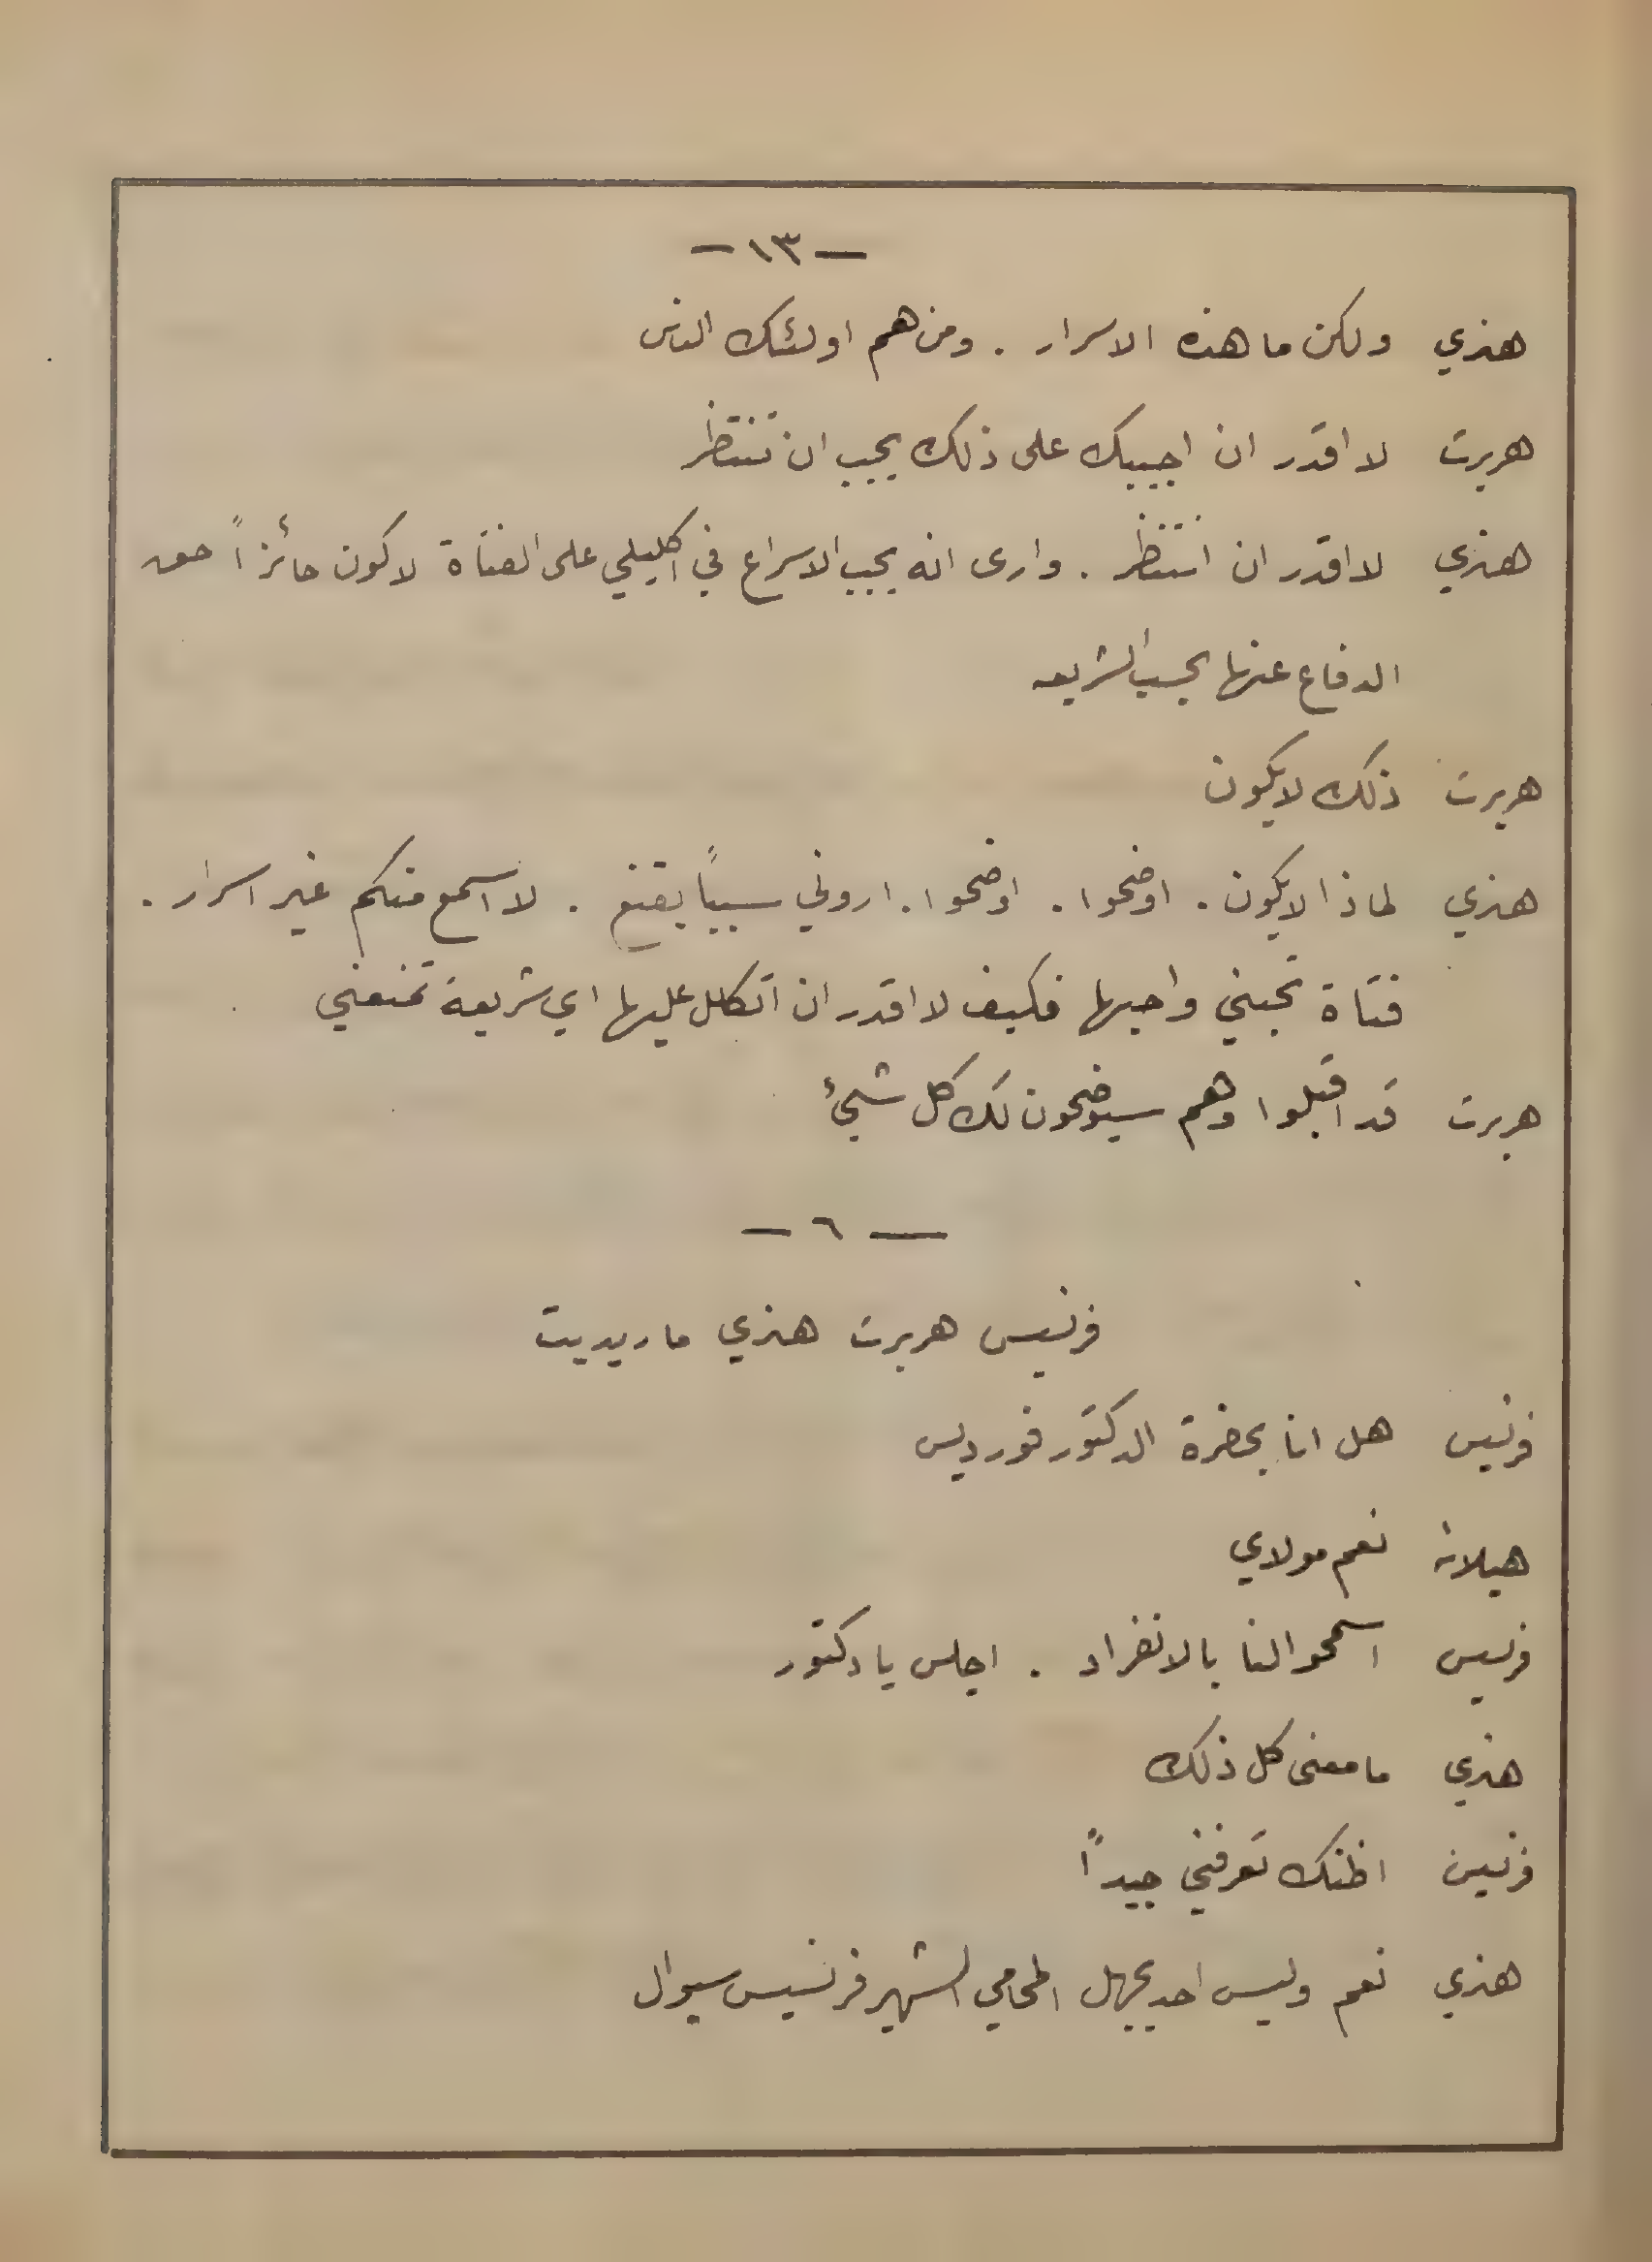 — ١٣ —
هنري ولكن ما هذه الاسرار . ومن هم اولئك الناس
هربرت لا اقدر ان اجيبك على ذلك يجب ان تنتظر
هنري لا اقدر ان انتظر . وارى انه يجب الاسراع في اكليلي على الفتاة لاكون حائزاً حق
الدفاع عنها بحسب الشريعه
هربرت ذلك لا يكون
هنري لماذا لا يكون . اوضحوا . اوضحوا . اروني سبباً يقنع . لا اسمع منكم غير اسرار .
فتاة تحبني واحبها فكيف لا اقدر ان اتكلل عليها اي شريعة تمنعني
هربرت قد اقبلوا وهم سيوضحون لك كل شيئ
— ٦ —
فرنسيس هربرت هنري ماريديت
فرنسيس هل انا بحضرة الدكتور فورديس
هيلانة نعم مولاي
فرنسيس اسمحوا لنا بالانفراد . اجلس يا دكتور
هنري ما معنى كل ذلك
فرنسيس اظنك تعرفني جيداً
هنري نعم وليس احد يجهل المحامي الشهير فرنسيس سيوال